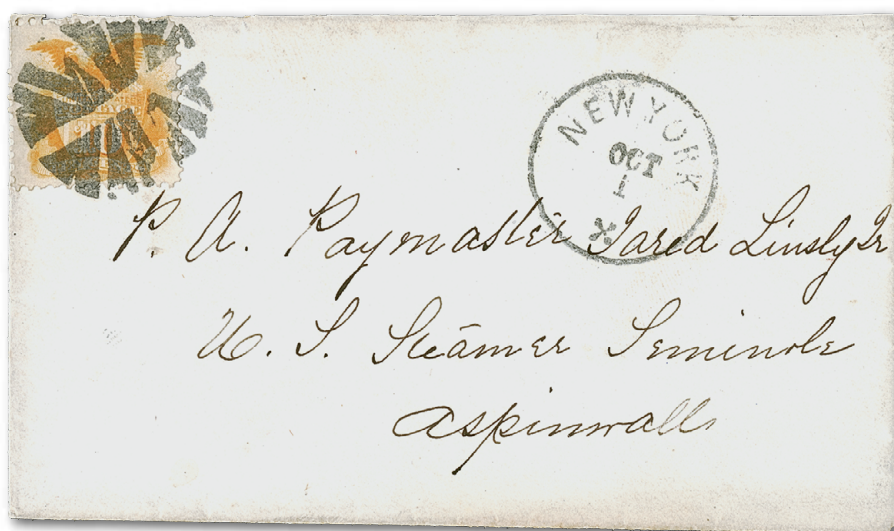 NEW YORK
OCT
1
P. A. Paymaster Jared Linsly Jr
U. S. Steamer Seminole
Aspinwall